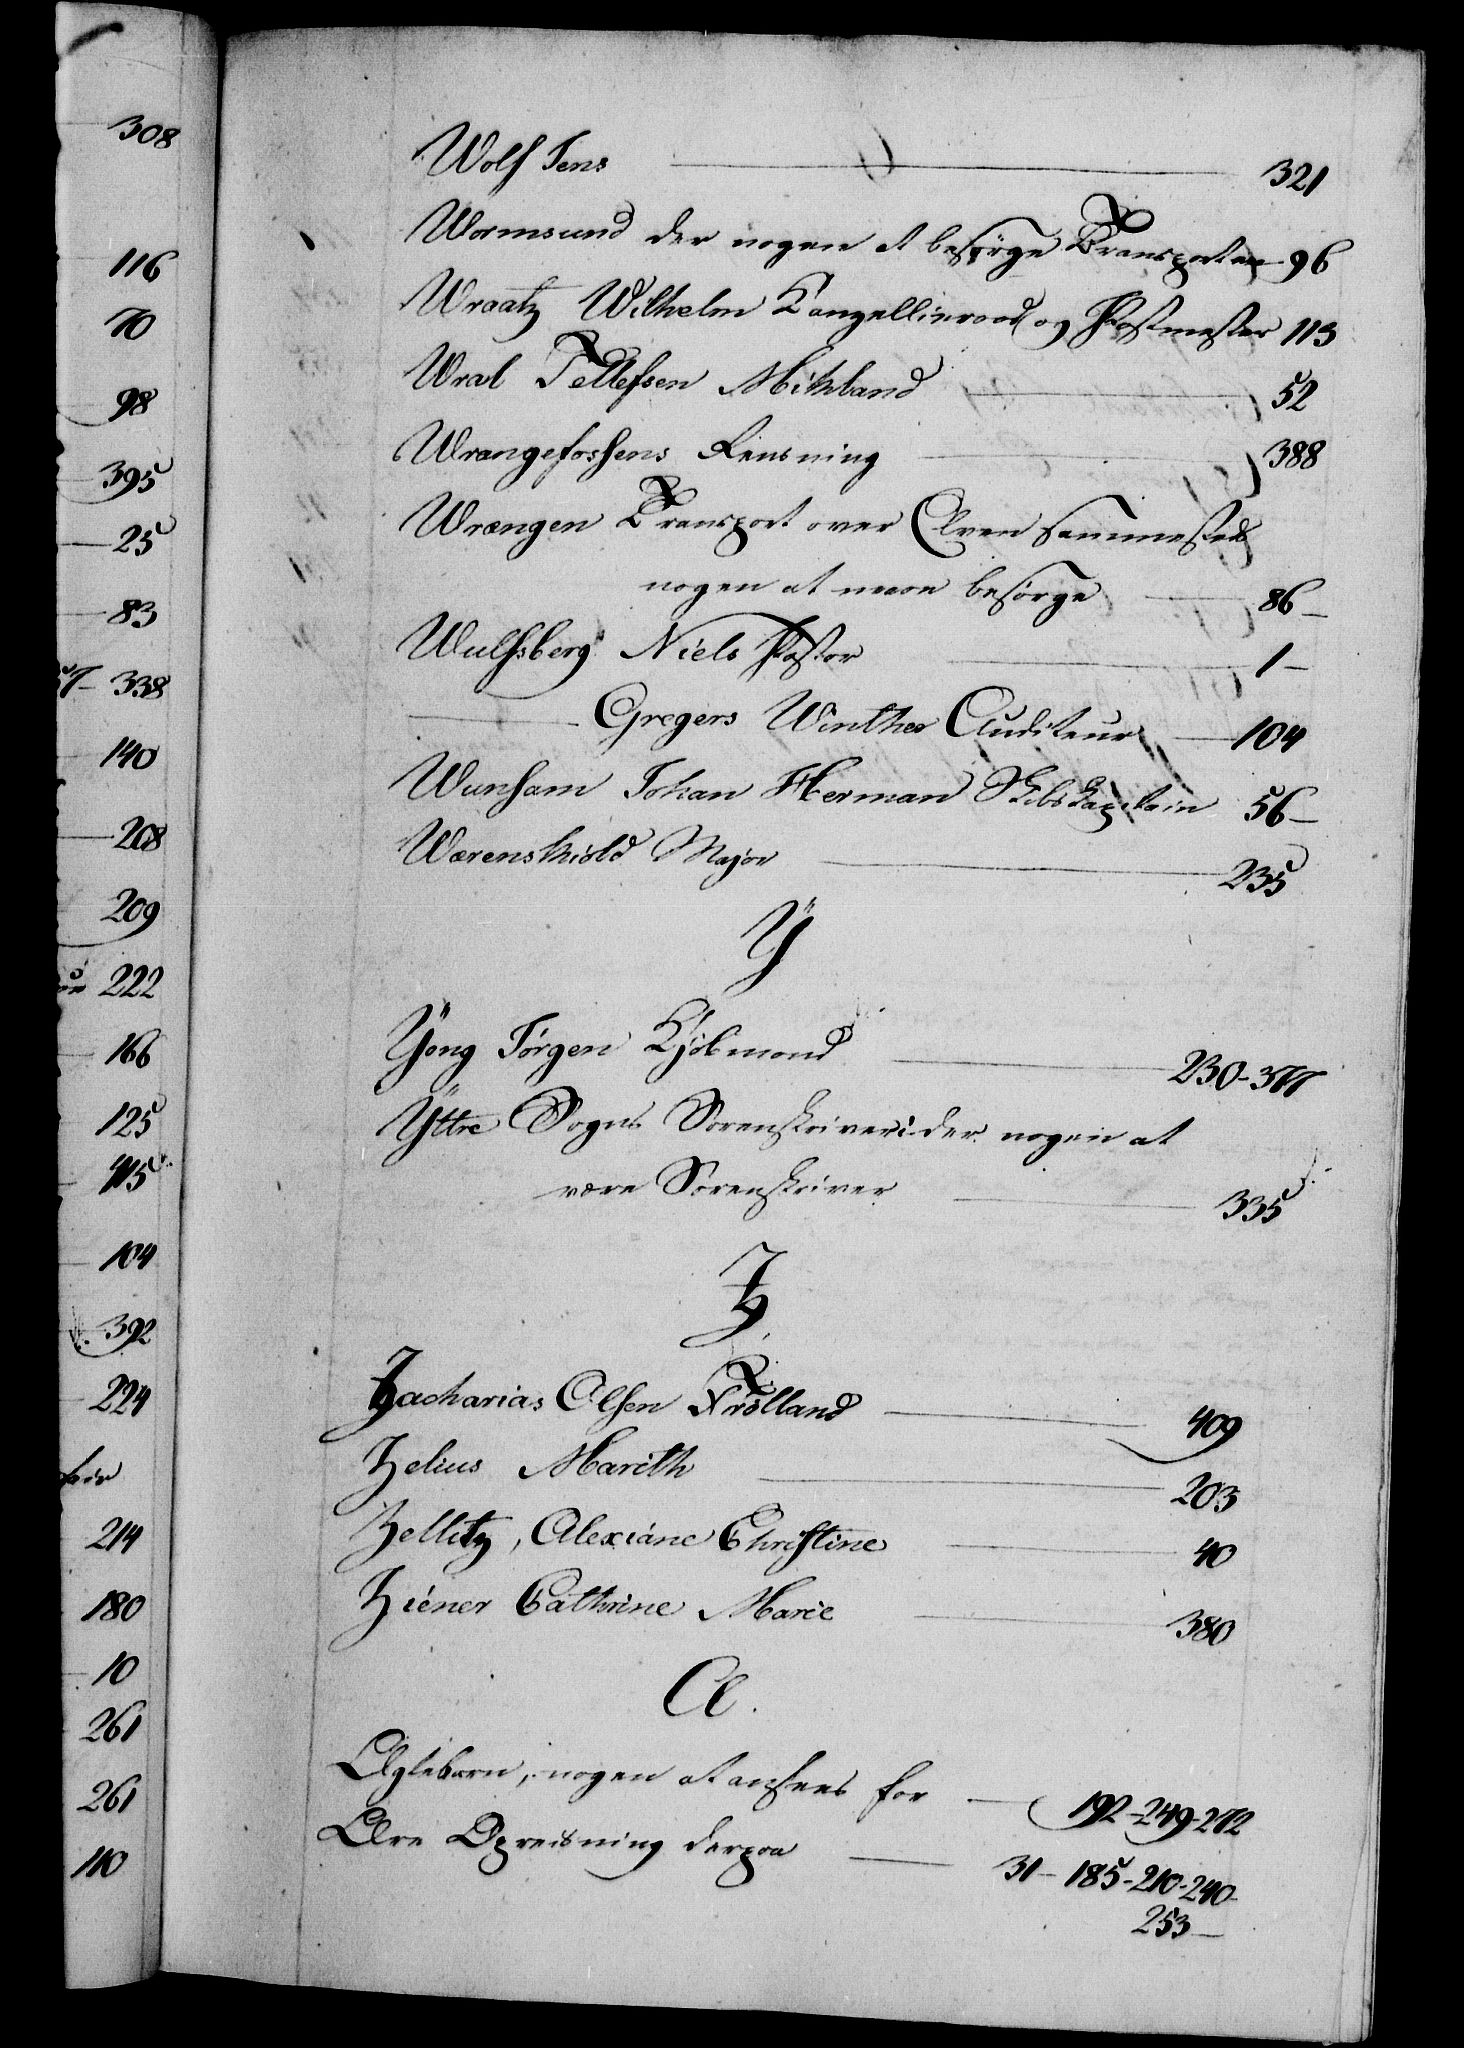 308
116
70
98
395
25
83
57- 338
140
208
209
222
166
125
415
104
392
224
214
180
10
261
261
110
Wolf Jens 321
Wormsund der nogen at besørge Transporten 96
Wraatz Wilhelm Kanzellieraad og Postmester 113
Wral Tellefsen Mitland 52
Wrangefossens Rensning 388
Wrængen Transport over Elven sammesteds
nogen at maae besørge 86-
Wulfsberg Niels Pastor 1-
Gregers Winther Auditeur 104
Wunsam Johan Herman Skibskapitain 56-
Wærenskiold Major 235
Y
Yong Jørgen Kjøbmand 230-377
Yttre Sogns Sorenskriveri der nogen at
være Sorenskriver 335
Z
Zacharias Olsen Trolland 409
Zelius Marith 203
Zellitz, Alexiane Christine 40
Ziener Cathrine Marie 380
Æ.
Ægtebarn, nogen at ansees for 192-249-272
Ære Opreisning derpaa 31-185-210-240-
253-